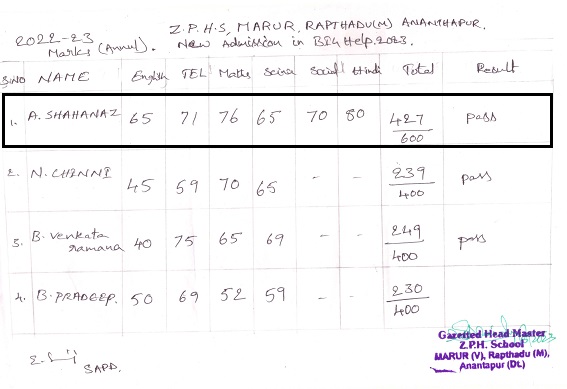 Z.P.H.S, MARUR, RAPTHADU(M) ANANTHAPUR.
2022-23
Marks (Annul).
New Admission in BIG Help. 2023.
SINO NAME English TEL Maths Scina Social Hindi Total Result
1. A. SHAHANAZ 65 71 76 65 70 80 427/600 pass
2. N. CHINNI 45 59 70 65 - - 239/400 pass
3. B. Venkata ramana 40 75 65 69 - - 249/400 pass
4. B. PRADEEP. 50 69 52 59 - - 230/400
Gazetted Head Master
Z.P.H. School
MARUR (V), Rapthadu (M),
Anantapur (Dt.)